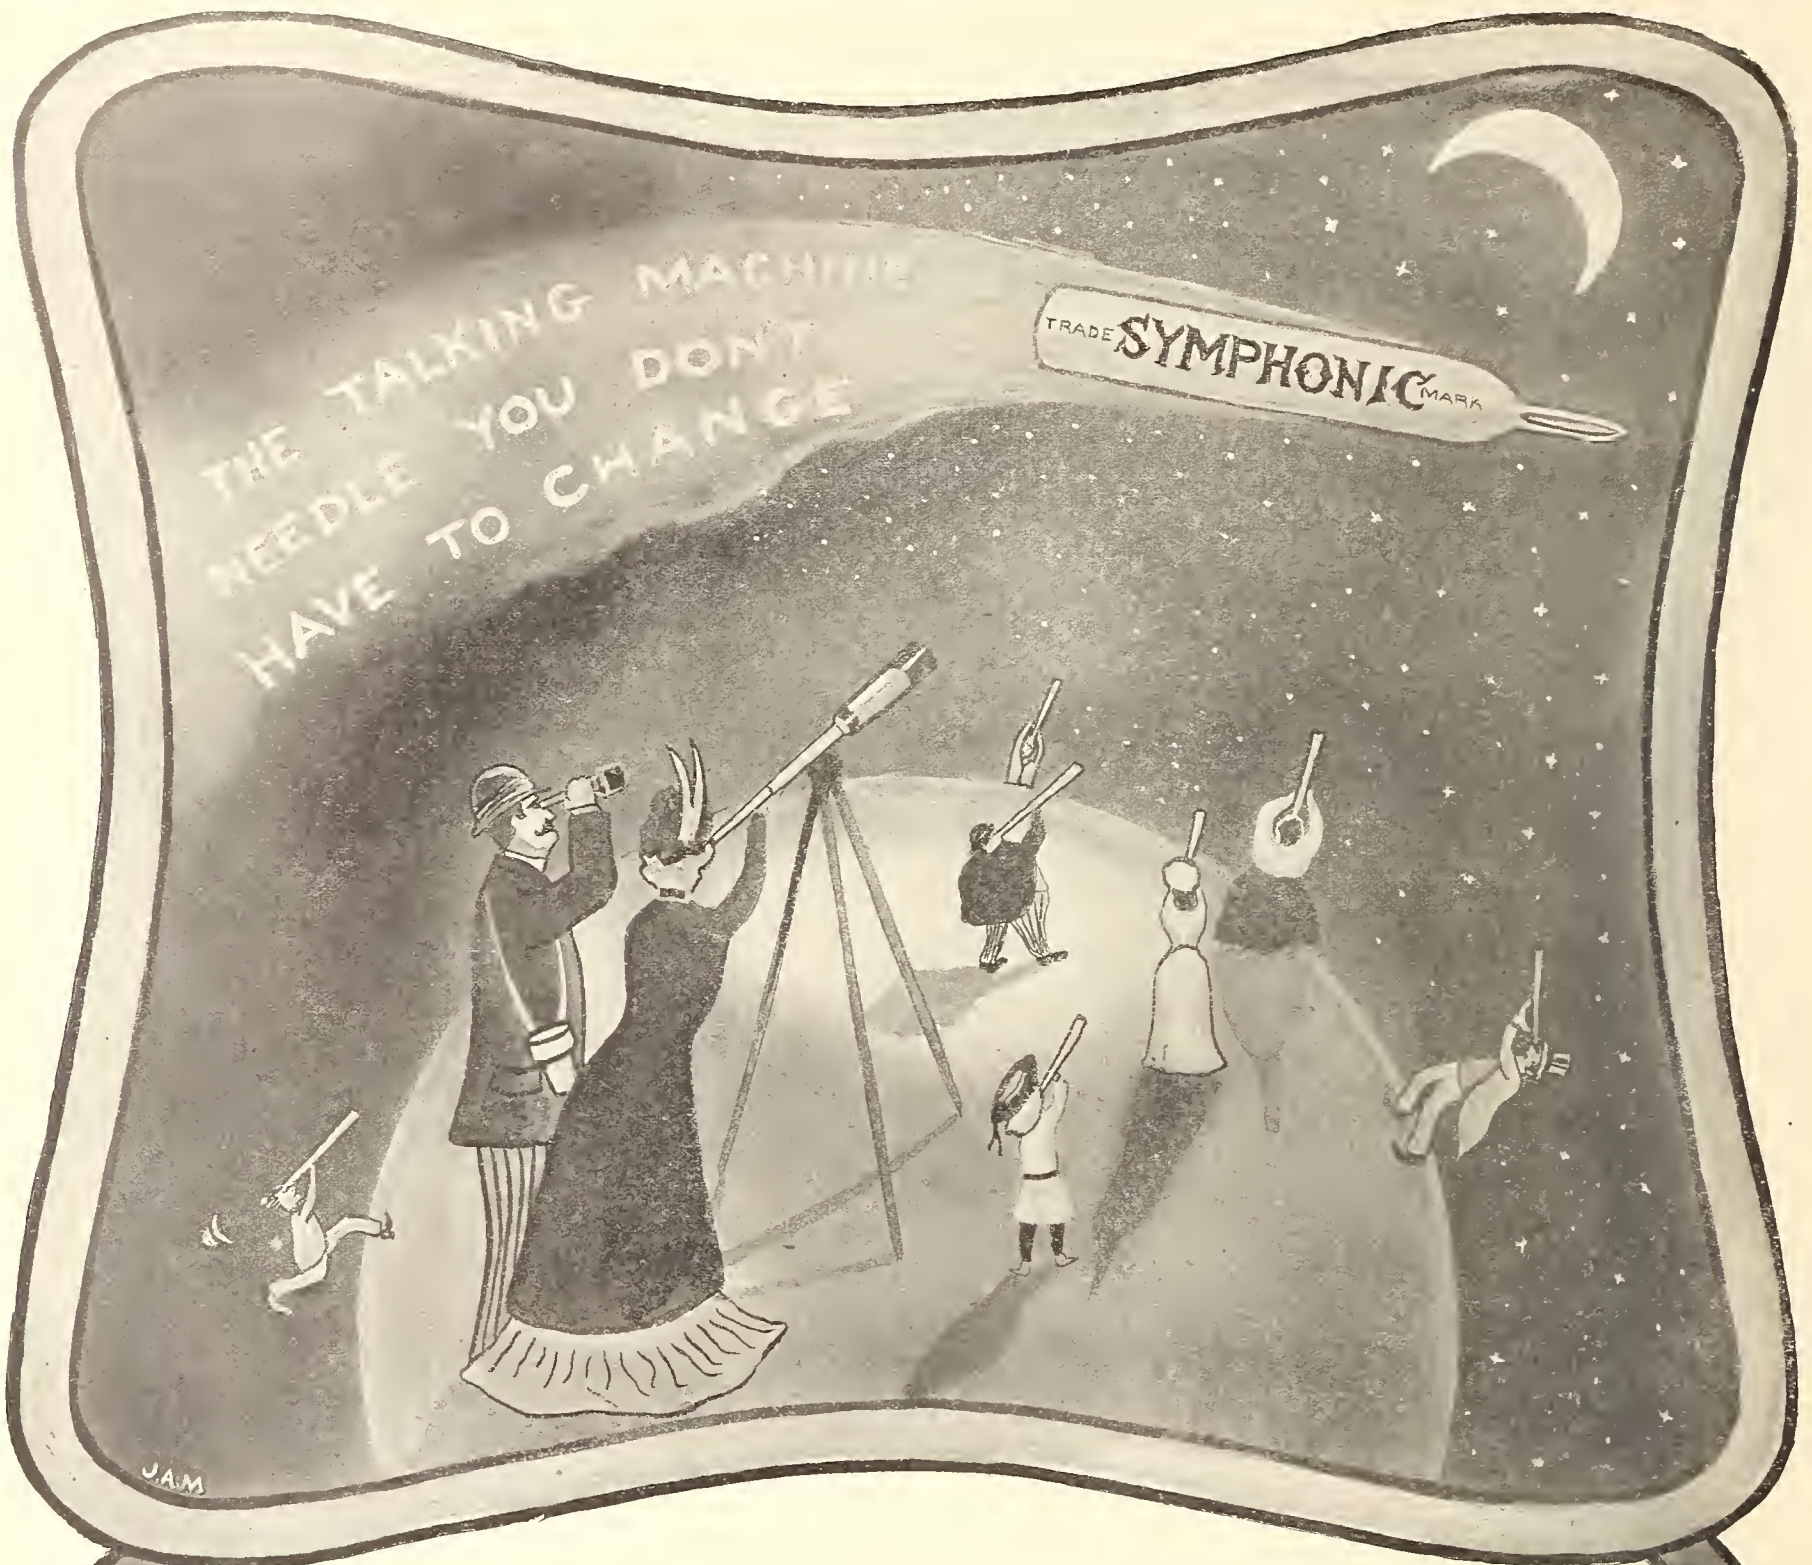 THE TALKING MACHINE
NEEDLE YOU DON'T
HAVE TO CHANGE
TRADE SYMPHONIC MARK
J.A.M.